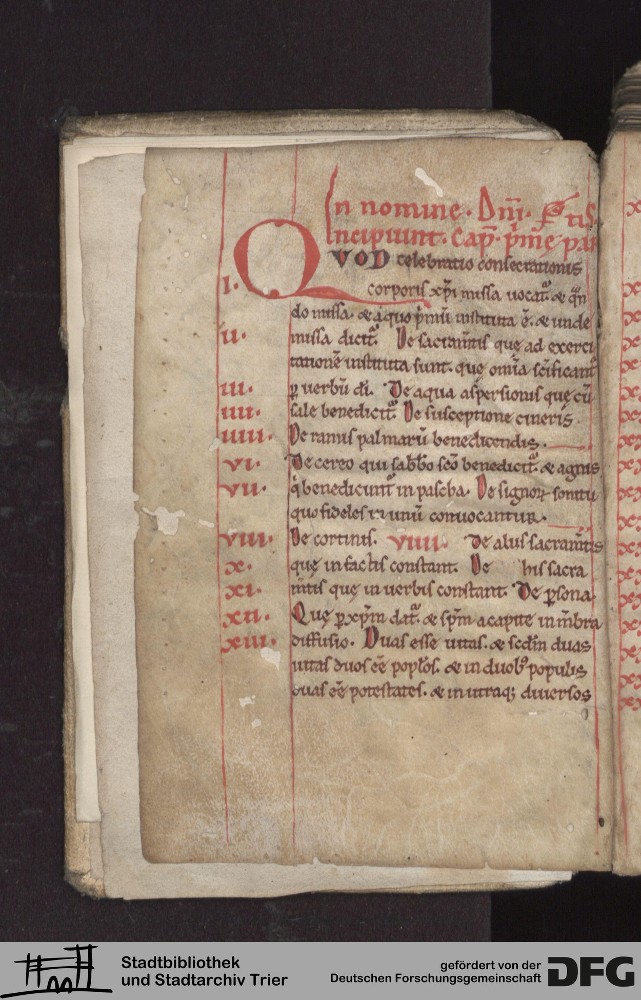 In nomine. Dñi.
Incipiunt. Cap̃. p̃me par
QVOD celebratio consecrationis
I. corporis xp̃i missa uocat᷑. & qñ
do missa. & a quo p̃mũ instituta ẽ. & unde
II. missa dicit᷑. De sacram̃tis que ad exerci
tationẽ instituta sunt. quę om̃ia sc̃ificant᷑
III. ꝑ uerbũ di. De aqua aspersionis que cũ
IIII. sale benedicit᷑. De susceptione cineris.
IIIII. De ramis palmarũ benedicendis.
VI. De cereo qui sabb̃o sc̃o benedicit᷑. & agnis
VII. q̇ benedicunt᷑ in pascha. De signoꝝ sonitu
quo fideles in unũ conuocantur.
VIII. De cortinis. VIIII. De aliis sacram̃tis
X. quę in factis constant. De his sacra
XI. m̃tis quę in uerbis constant. De ꝑsona
XII. Quę ꝑ xp̃m dat᷑. & sp̃m a capite in m̃bra
XIII. diffusio. Duas esse uitas. & scdm̃ duas
uitas duos eẽ popl̃os. & in duob᷒ populis
duas eẽ potestates. & in utraq; diuersos
Stadtbibliothek
und Stadtarchiv Trier
gefördert von der
Deutschen Forschungsgemeinschaft
DFG